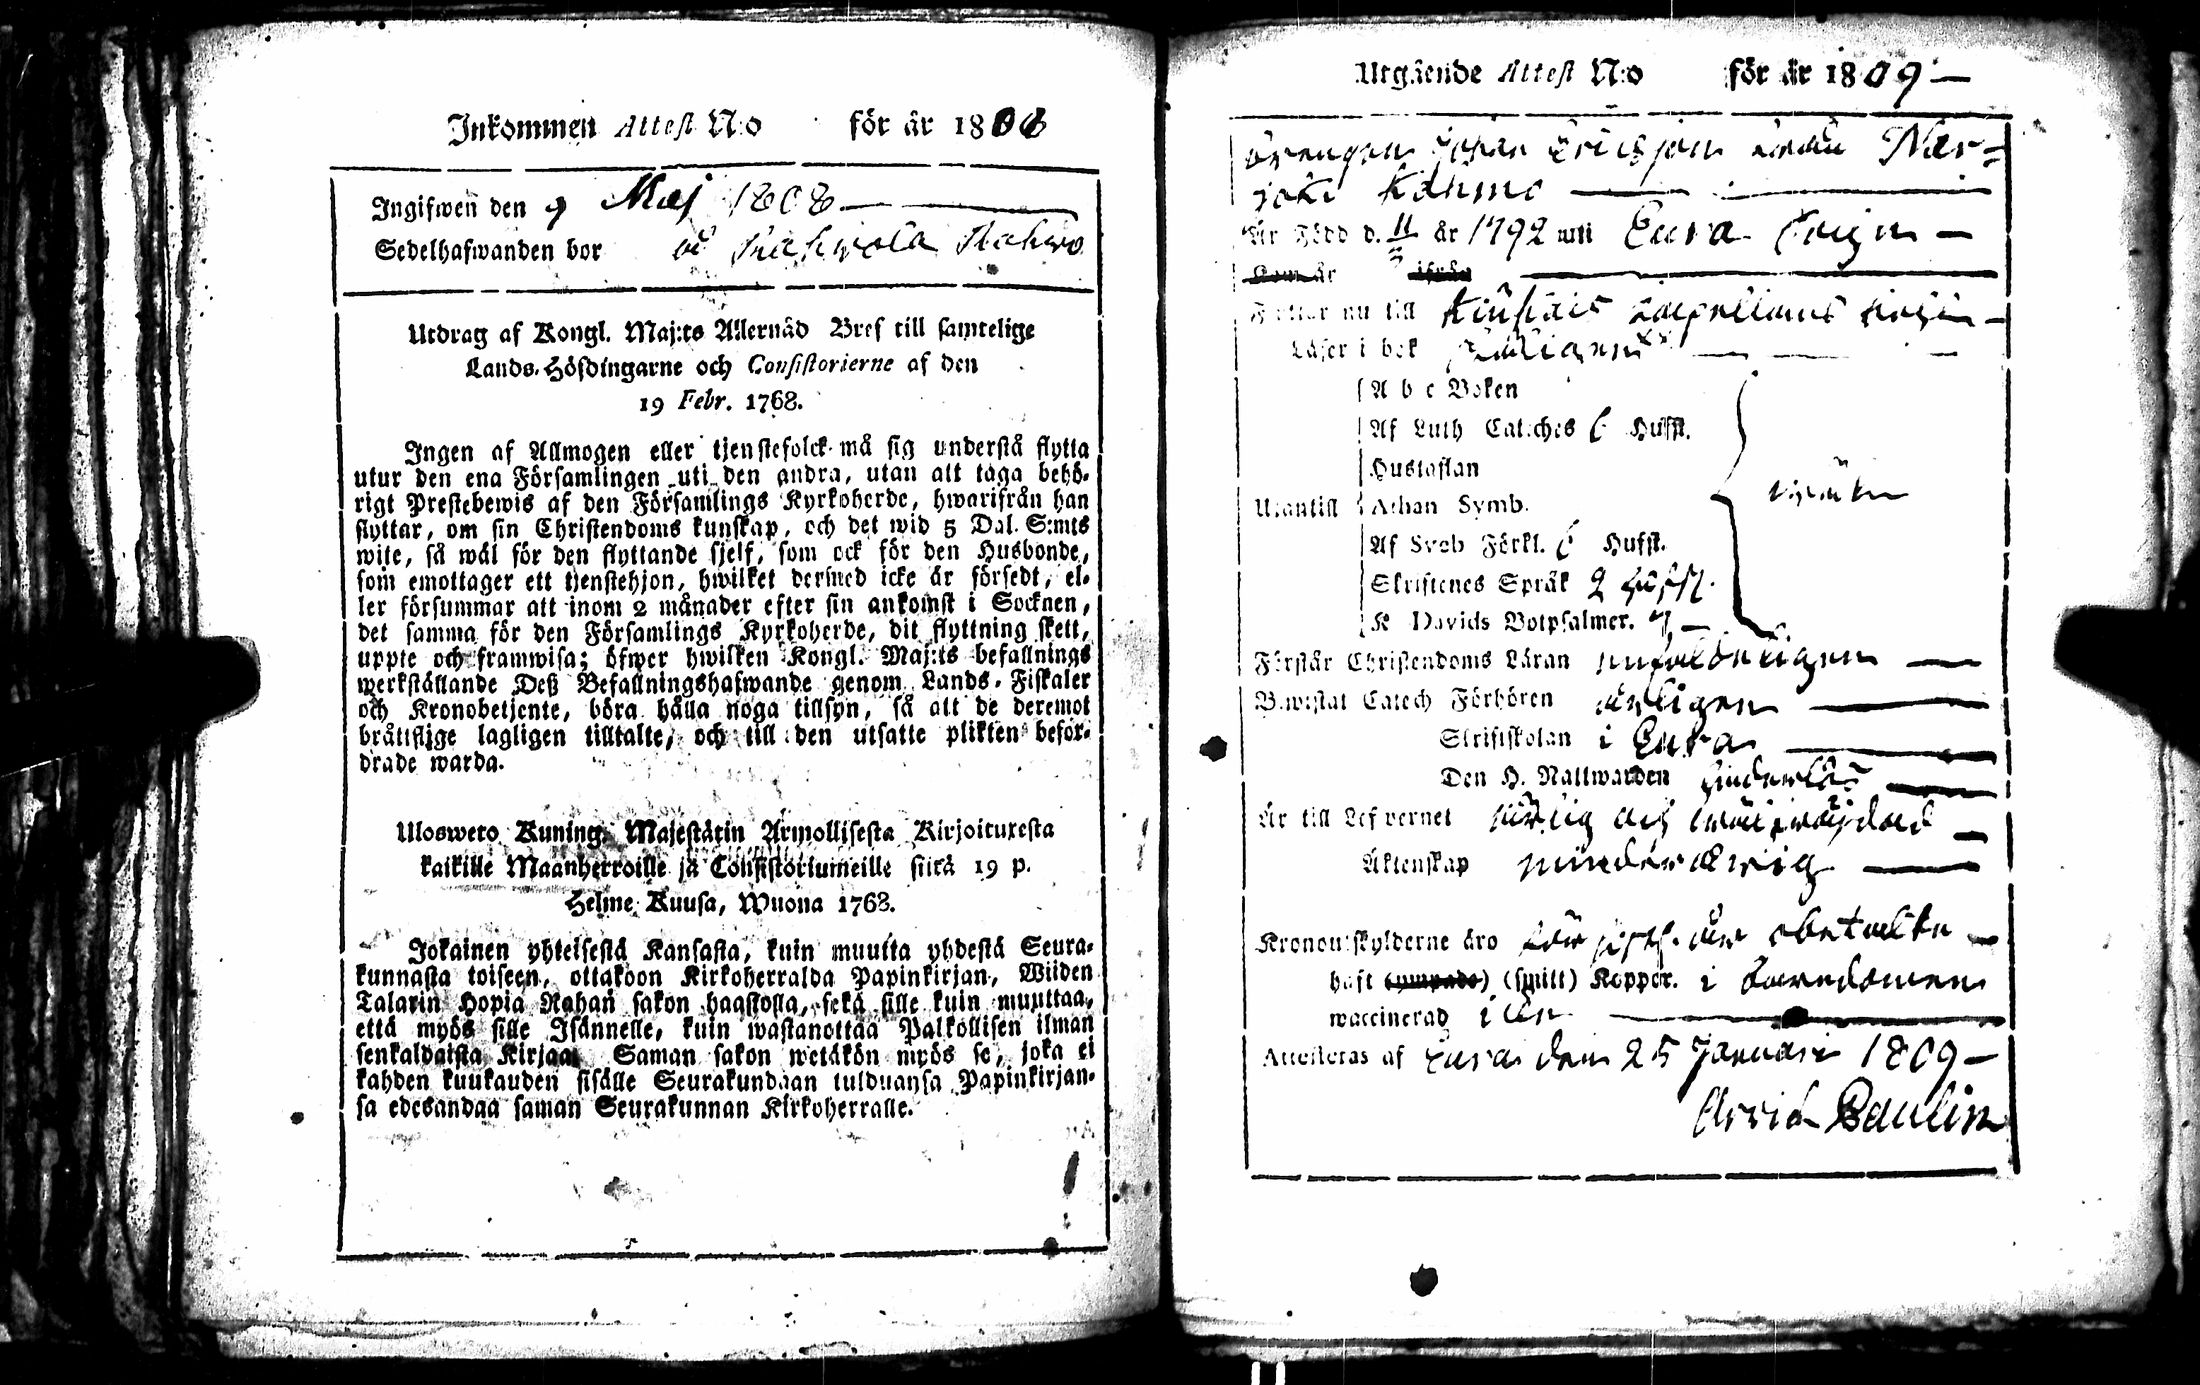 Inkommen Attest N:o för år 1808
Ingifwen den 9 Maj 1808
Sedelhafwanden bor
Utdrag af Kongl. Maj:ts Allernåd Bref till samtelige
Lands-Höfdingarne och Consistorierne af den
19 Febr. 1768.
Ingen af Allmogen eller tjenstefolck må sig understå flytta
utur den ena Församlingen uti den andra, utan att taga behö-
rigt Prestebewis af den Församlings Kyrkoherde, hwarifrån han
flyttar, om sin Christendoms kunskap, och det wid 5 Dal. S:mts
wite, så wäl för den flyttande sjelf, som ock för den Husbonde,
som emottager ett tjenstehjon, hwilket dermed icke är försedt, el-
ler försummar att inom 2 månader efter sin ankomst i Socknen,
det samma för den Församlings Kyrkoherde, dit flyttning skett,
uppte och framwisa; öfwer hwilken Kongl. Maj:ts befallnings
werkställande Deß Befallningshafwande genom Lands-Fiskaler
och Kronobetjente, böra hålla noga tillsyn, så att de deremot
bråttslige lagligen tilltalte, och till den utsatte plikten befor-
drade warda.
Uloswето Kuning. Majestätin Armollisesta Kirjoituxesta
kaikille Maanherroille ja Consistoriumeille siitä 19 p.
Helme Kuusa, Wuona 1768.
Jokainen yhteisestä Kansasta, kuin muutta yhdestä Seura-
kunnasta toiseen, ottakoon Kirkoherralda Papinkirjan, Wiiden
Talarin Hopia Rahan sakon haastolla, sekä sille kuin muuttaa,
että myös sille Isännelle, kuin wastanottaa Palkollisen ilman
senkaldaista Kirjaa. Saman sakon wetäkön myös se, joka ei
kahden kuukauden sisälle Seurakundaan tulduansa Papinkirjan-
sa edesandaa saman Seurakunnan Kirkoherralle.
Utgående Attest N:o för år 1809
Drengen Johan Ericsson ifrån Nar-
joki Kahmo
Är Född d. 11/3 år 1792 uti Eura Sogn
Kom år ifrån
Flyttar nu till Kiukais Capellans
Läser i bok
A b c Boken
Af Luth Catches 6 Hufst.
Hustaflan
Utantill Athan Symb.
Af Sveb Förkl. 6 Hufst.
Skriftenes Språk 2 hufst.
K Davids Botpsalmer. 7
Förstår Christendoms Läran enfaldeligen
Bewistat Catech Förhören årligen
Skriftskolan i Eura
Den H. Nattwarden hinderlös
Är till Lefvernet
Äktenskap minderårig
Kronoutskylderne äro för sistl. år obetalte
haft (ympade) (smitt) Koppor. i barndomen
waccinerad
Attesteras af Eura den 25 Januari 1809
Arvid Paulin